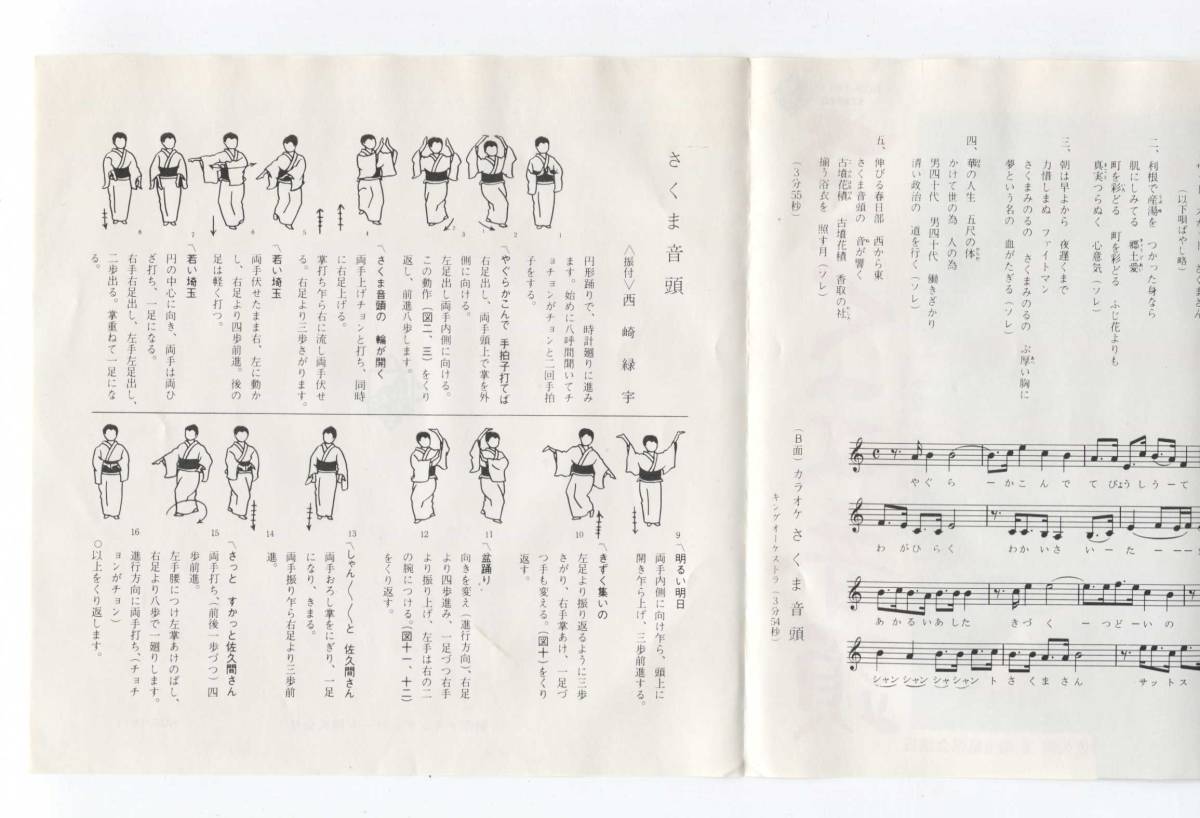 さくま音頭
〈振付〉西崎緑宇
円形踊りで、時計廻りに進み
ます。始めに八呼間聞いてチ
ョチョンがチョンと二回手拍
子をする。
〽やぐらかこんで 手拍子打てば
右足出し、両手頭上で掌を外
側に向ける。
左足出し両手内側に向ける。
この動作(図二、三)をくり
返し、前進八歩します。
〽さくま音頭の 輪が開く
両手上げチョンと打ち、同時
に右足上げる。
掌打ち乍ら右に流し両手伏せ
る。右足より三歩さがります。
〽若い埼玉
両手伏せたまま右、左に動か
し、右足より四歩前進。後の
足は軽く打つ。
〽若い埼玉
円の中心に向き、両手は両ひ
ざ打ち、一足になる。
右手右足出し、左手左足出し、
二歩出る。掌重ねて一足にな
る。
1
2
3
2
3
4
5
6
7
8
9
〽明るい明日
両手内側に向け乍ら、頭上に
開き乍ら上げ、三歩前進する。
〽きずく集いの
10
左足より振り返るように三歩
さがり、右手掌あけ、一足づ
つ手も変える。(図十)をくり
返す。
〽盆踊り
11
向きを変え(進行方向)、右足
より四歩進み、一足づつ右手
12
より振り上げ、左手は右の二
の腕につける。(図十一、十二)
をくり返す。
〽しゃん〱〱と 佐久間さん
13
両手おろし掌をにぎり、一足
になり、きまる。
14
両手振り乍ら右足より三歩前
進。
〽さっと すかっと佐久間さん
15
両手打ち、(前後一歩づつ)四
歩前進。
左手腰につけ左掌あけのばし、
右足より八歩で一廻りします。
16
進行方向に両手打ち、(チョチ
ョンがチョン)
○以上をくり返します。
(以下唄ばやし略)
二、利根で産湯を つかった身なら
肌にしみてる 郷土愛
町を彩どる 町を彩どる ふじ花よりも
真実つらぬく 心意気(ソレ)
三、朝は早よから 夜遅くまで
力惜しまぬ ファイトマン
さくまみのるの さくまみのるの ぶ厚い胸に
夢という名の 血がたぎる(ソレ)
四、華の人生 五尺の体
かけて世の為 人の為
男四十代 男四十代 働きざかり
清い政治の 道を行く(ソレ)
五、伸びる春日部 西から東
さくま音頭の 音が響く
古墳花積 古墳花積 香取の社
揃う浴衣を 照す月(ソレ)
(3分55秒)
(B面)カラオケ さくま音頭
キングオーケストラ(3分54秒)
やぐら ーかこんで てびょうしうーて
わがひらく わかいさ いーたー
あかるいあした きづく ーつどーいの
シャン シャン シャシャン トさくまさん サットス